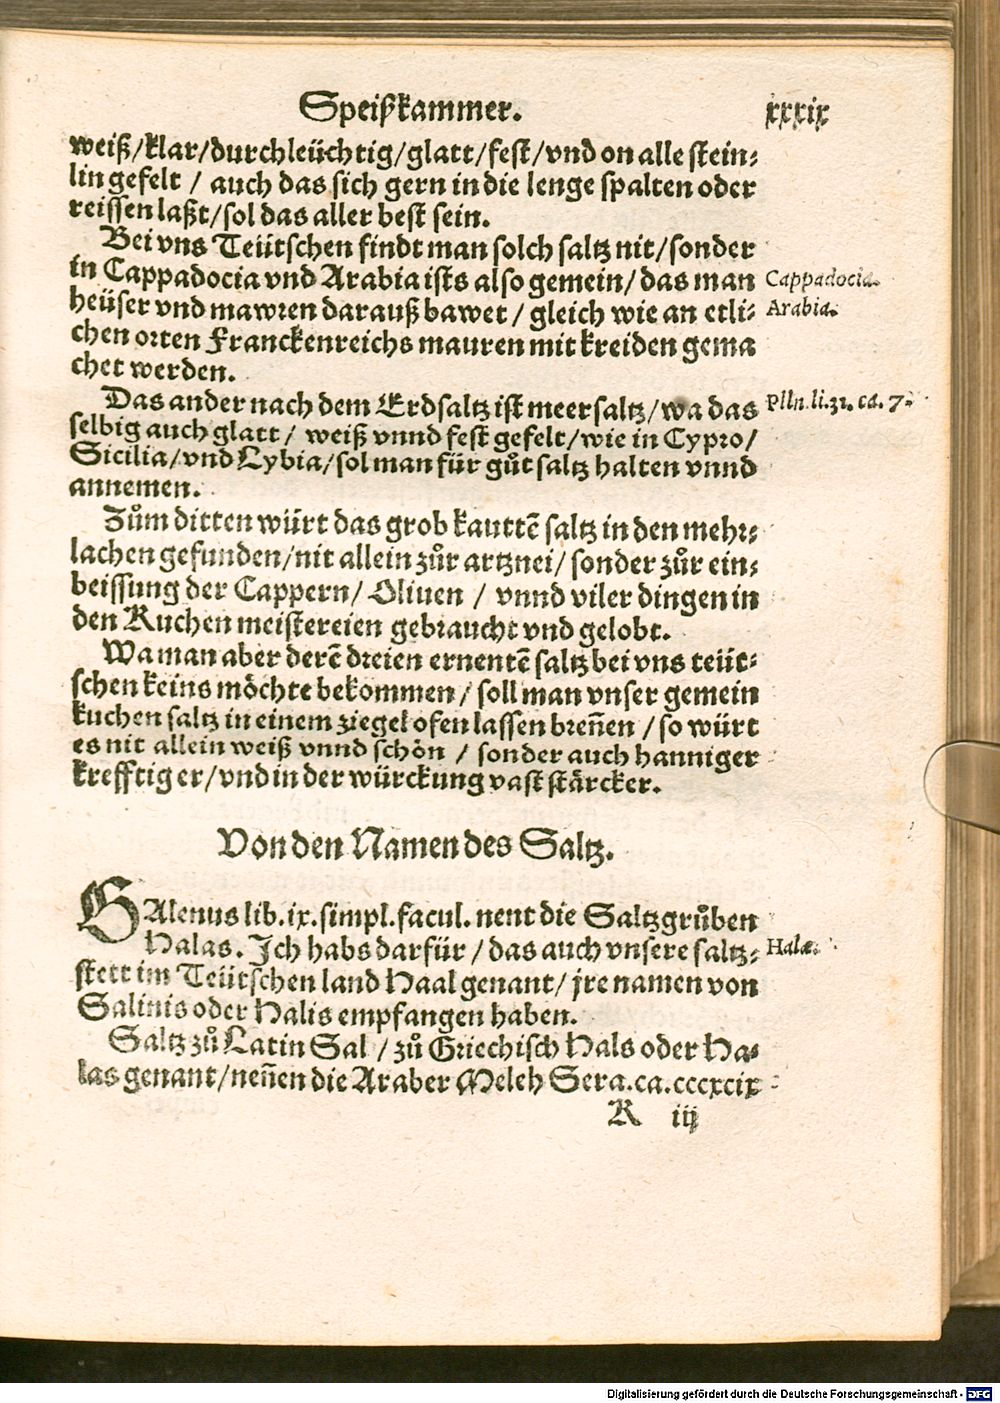 Speißkammer. xxxix
weiß/klar/durchleüchtig/glatt/fest/vnd on alle stein⸗
lin gefelt / auch das sich gern in die lenge spalten oder
reissen laßt/sol das aller best sein.
Bei vns Teütschen findt man solch saltz nit/sonder
in Cappadocia vnd Arabia ists also gemein/das man Cappadocia.
heüser vnd mawren darauß bawet / gleich wie an etli⸗ Arabia.
chen orten Franckenreichs mauren mit kreiden gema
chet werden.
Das ander nach dem Erdsaltz ist meersaltz/wa das Plin.li.31. ca. 7.
selbig auch glatt / weiß vnnd fest gefelt/wie in Cypro/
Sicilia/vnd Lybia/sol man für gůt saltz halten vnnd
annemen.
Zům ditten würt das grob kauttē saltz in den mehr⸗
lachen gefunden/nit allein zůr artznei/sonder zůr ein⸗
beissung der Cappern/ Oliuen / vnnd viler dingen in
den Kuchen meistereien gebraucht vnd gelobt.
Wa man aber derē dreien ernentē saltz bei vns teüt⸗
schen keins möchte bekommen / soll man vnser gemein
kuchen saltz in einem ziegel ofen lassen breñen / so würt
es nit allein weiß vnnd schön / sonder auch hanniger
krefftiger/vnd in der würckung vast stärcker.
Von den Namen des Saltz.
GAlenus lib. ix. simpl. facul. nent die Saltzgrůben
Halas. Ich habs darfür / das auch vnsere saltz⸗ Halæ.
stett im Teütschen land Haal genant/ jre namen von
Salinis oder Halis empfangen haben.
Saltz zů Latin Sal / zů Griechisch Hals oder Ha⸗
las genant/neñen die Araber Meleh Sera.ca.cccxcix
K iij
Digitalisierung gefördert durch die Deutsche Forschungsgemeinschaft - DFG